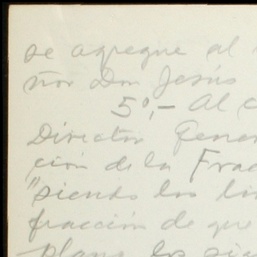 se agregue al
ñor Don Jesús
5º,- Al c
Director Gener
ción de la Frac
"siendo los lin
fracción de que
plano los sigu